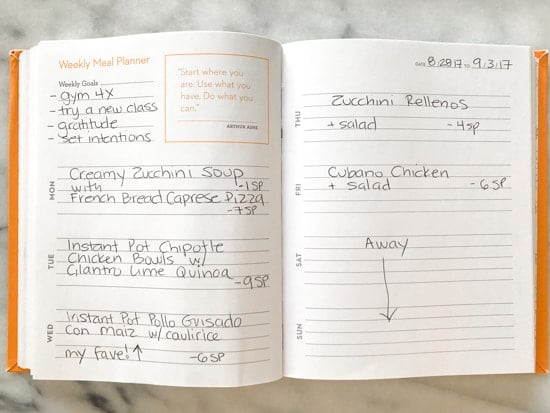 Weekly Meal Planner
Weekly Goals
- gym 4x
- try a new class
- gratitude
- set intentions
"Start where you
are. Use what you
have. Do what you
can."
ARTHUR ASHE
MON
Creamy Zucchini Soup
with -1SP
French Bread Caprese Pizza
-7SP
TUE
Instant Pot Chipotle
Chicken Bowls w/
Cilantro Lime Quinoa
-9SP
WED
Instant Pot Pollo Guisado
con Maiz w/caulirice
my fave!↑ -6SP
DATE 8/28/17 TO 9/3/17
THU
Zucchini Rellenos
+ salad -4SP
FRI
Cubano Chicken
+ salad -6SP
SAT
Away
SUN